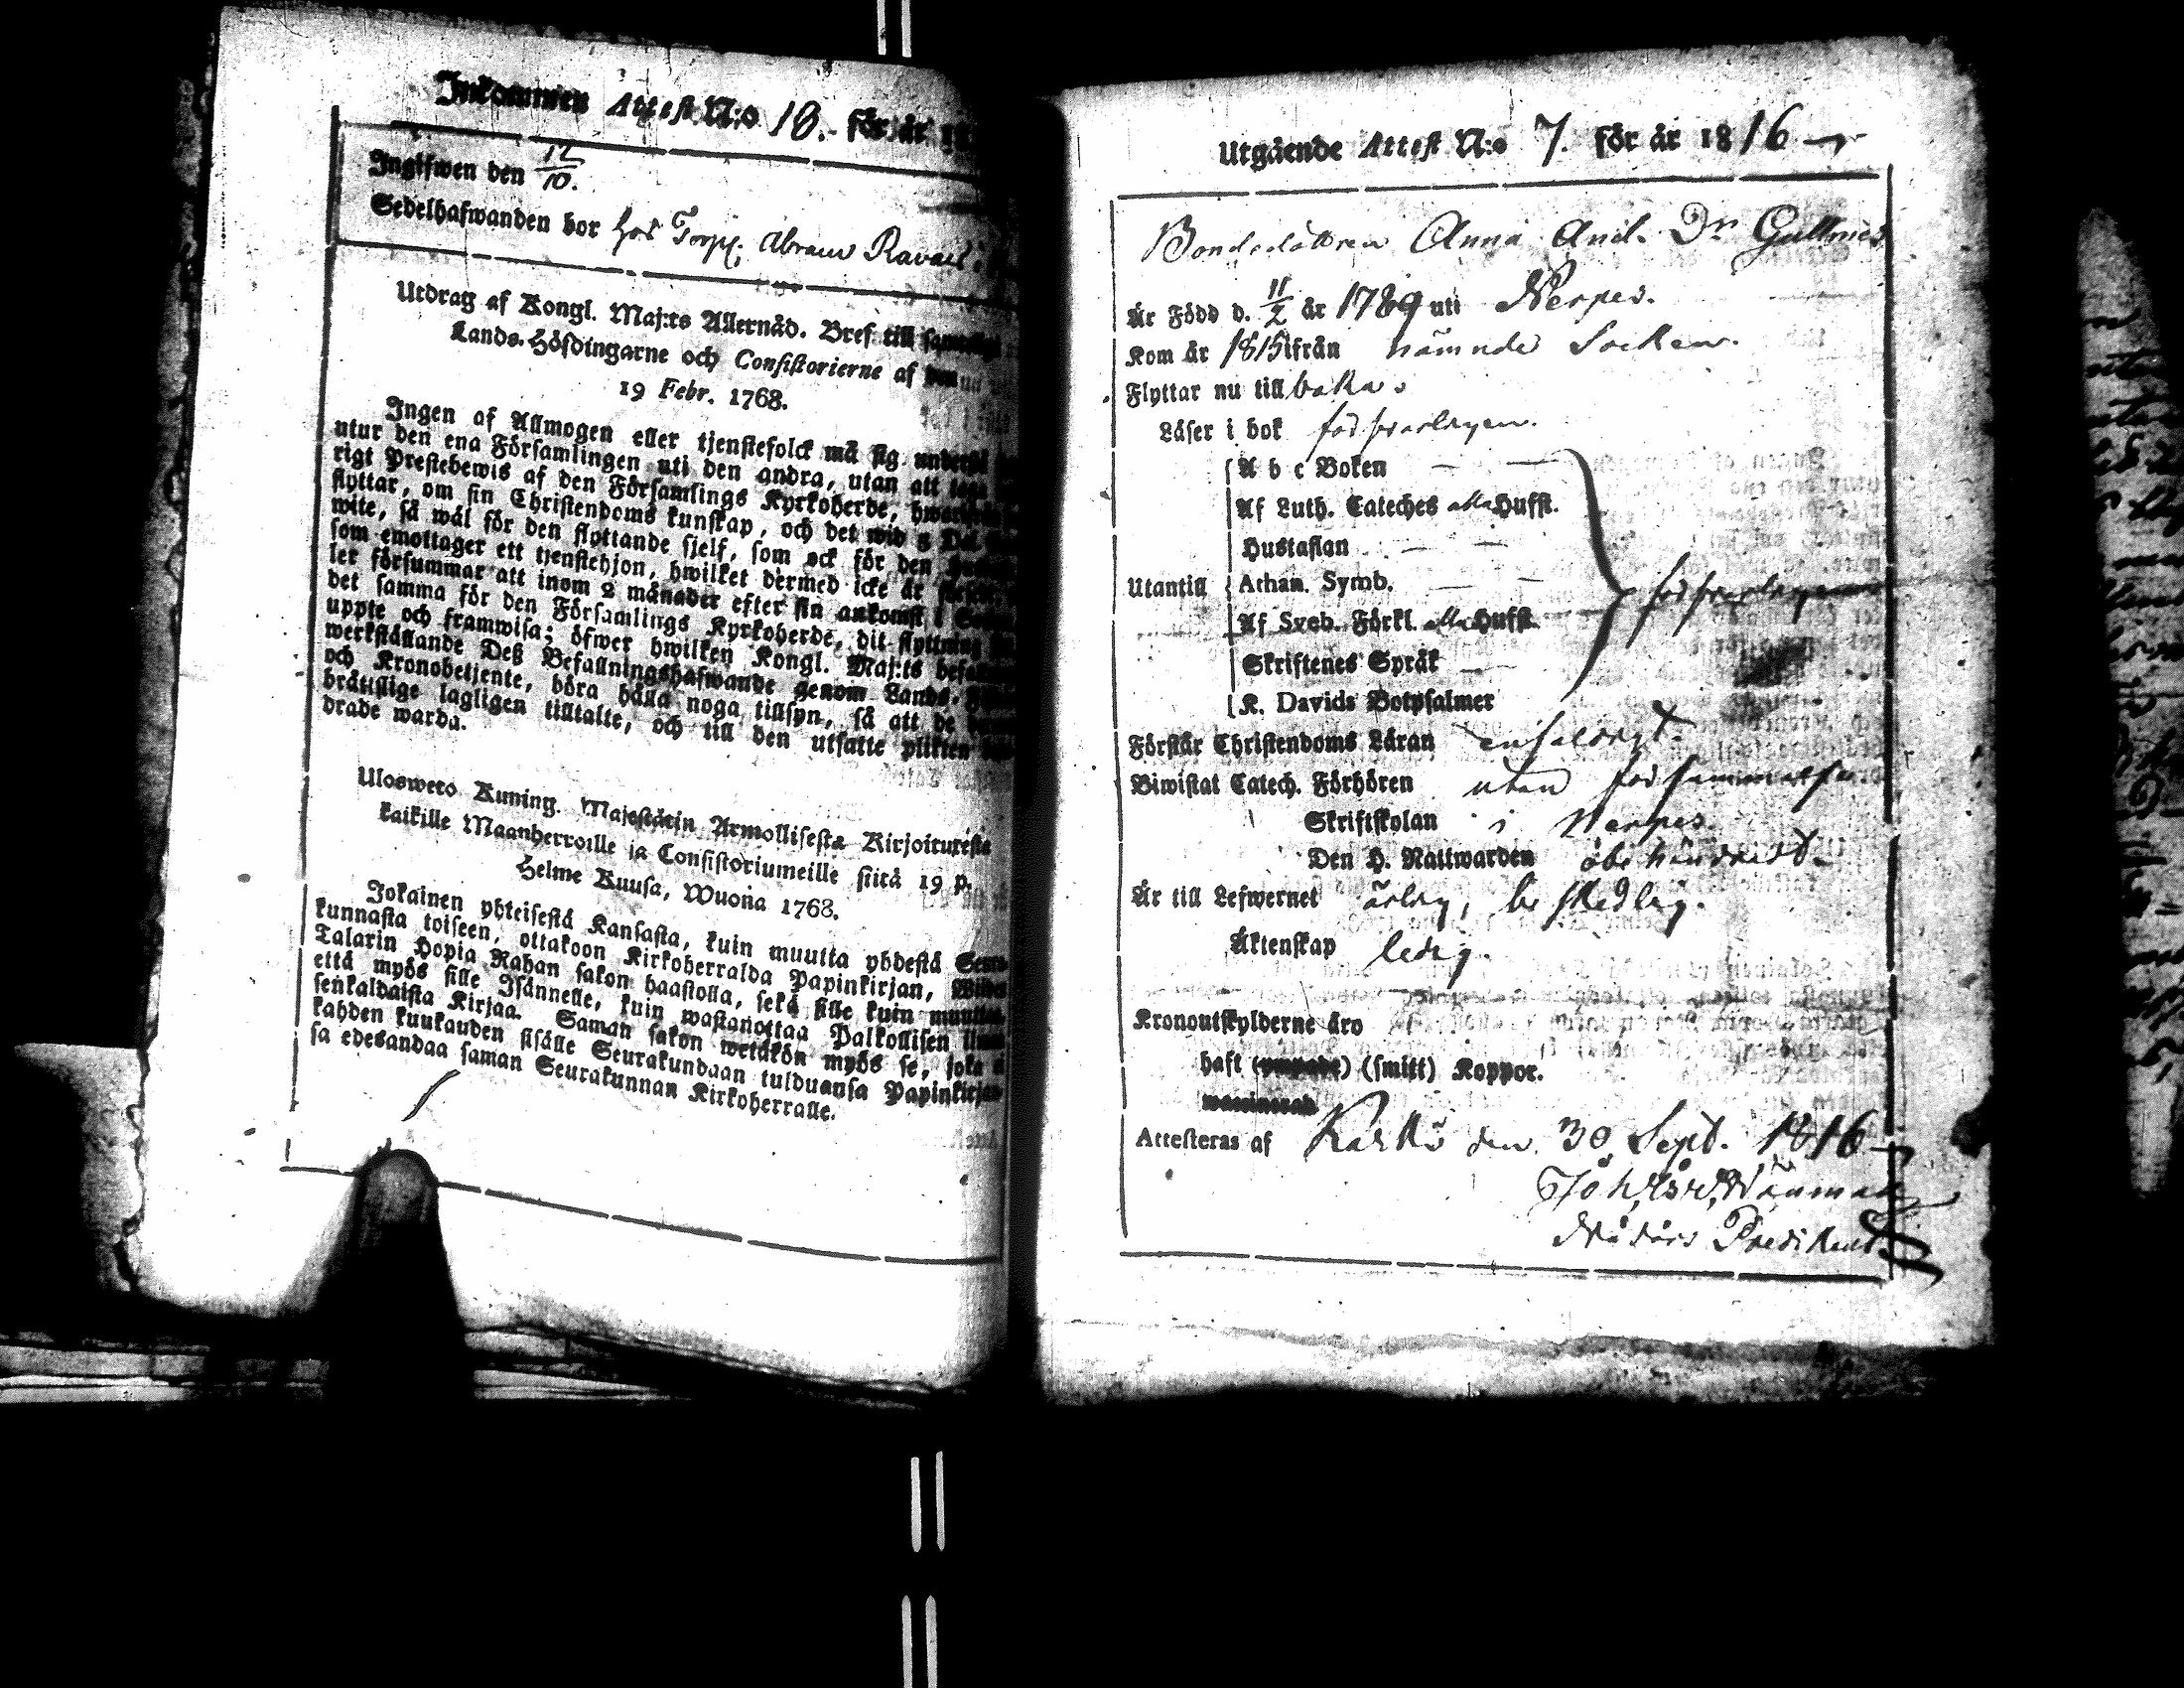 Inkommen Attest N:o 18. för år 18
Ingifwen den 12/10.
Sedelhafwanden bor hos Torp. Abram
Utdrag af Kongl. Maj:ts Allernåd. Bref till
Lands-Höfdingarne och Consistorierne af
19 Febr. 1768.
Ingen af Allmogen eller tjenstefolck må sig
utur den ena Församlingen uti den andra, utan att
rigt Prestebewis af den Församlings Kyrkoherde,
flyttar, om sin Christendoms kunskap, och det wid
wite, så wäl för den flyttande sjelf, som ock för den
som emottager ett tjenstehjon, hwilket dermed icke är
ler försummar att inom 2 månader efter sin ankomst i
det samma för den Församlings Kyrkoherde, dit flyttning
uppte och framwisa; öfwer hwilken Kongl. Maj:ts
werkställande Deß Befallningshafwande genom Lands-
och Kronobetjente, böra hålla noga tillsyn, så att de
brättslige lagligen tilltalte, och till den utsatte plikten
drade warda.
Ulosweto Kuning. Majestätin Armollisesta Kirjoituresta
kaikille Maanherroille ja Consistoriumeille siitä 19 p.
Helme Kuusa, Wuona 1768.
Jokainen yhteisestä Kansasta, kuin muutta yhdestä
kunnasta toiseen, ottakoon Kirkoherralda Papinkirjan,
Talarin Hopia Rahan sakon haastolla, sekä sille kuin
että myös sille Isännelle, kuin wastanottaa Palkollisen
senkaldaista Kirjaa. Saman sakon wetäkön myös se, joka
kahden kuukauden sisälle Seurakundaan tulduansa
sa edesandaa saman Seurakunnan Kirkoherralle.
Utgående Attest N:o 7. för år 1816
Bondedottren Anna And. Dr
Är Född d. 11/2 år 1789 uti Nerpes.
Kom år 1815 ifrån nämnde Socken.
Flyttar nu till baka.
Läser i bok försvarligen.
A b c Boken
Af Luth. Cateches alla Hufst.
Hustaflan
Utantill Athan. Symb. försvarligen
Af Sveb. Förkl. alla Hufst.
Skriftenes Språk
K. Davids Botpsalmer
Förstår Christendoms Läran enfaldigt.
Biwistat Catech. Förhören utan försummelse.
Skriftskolan i Nerpes.
Den H. Nattwarden obehindradt.
Är till Lefwernet ärlig, beskedlig.
Äktenskap ledig.
Kronoutskylderne äro
haft (ympade) (smitt) Koppor.
waccinerad
Attesteras af den 30 Sept. 1816